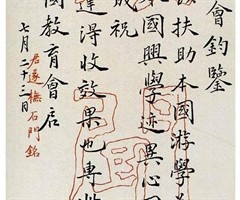 會鈞鑒
扶助本國游學
國興學迹異心
成祝
得收效果也專
國教育會启
七月二十三日
君遂橅石門銘